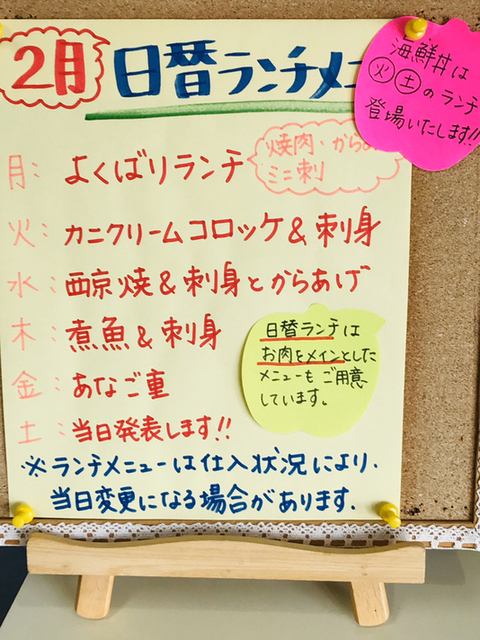 2月 日替ランチメニ
海鮮丼は
火 土 のランチ
登場いたします!!
月: よくばりランチ
焼肉・から
ミニ刺
火: カニクリームコロッケ&刺身
水: 西京焼&刺身とからあげ
木: 煮魚&刺身
金: あなご重
土: 当日発表します!!
日替ランチは
お肉をメインとした
メニューもご用意
しています。
※ランチメニューは仕入状況により、
当日変更になる場合があります.